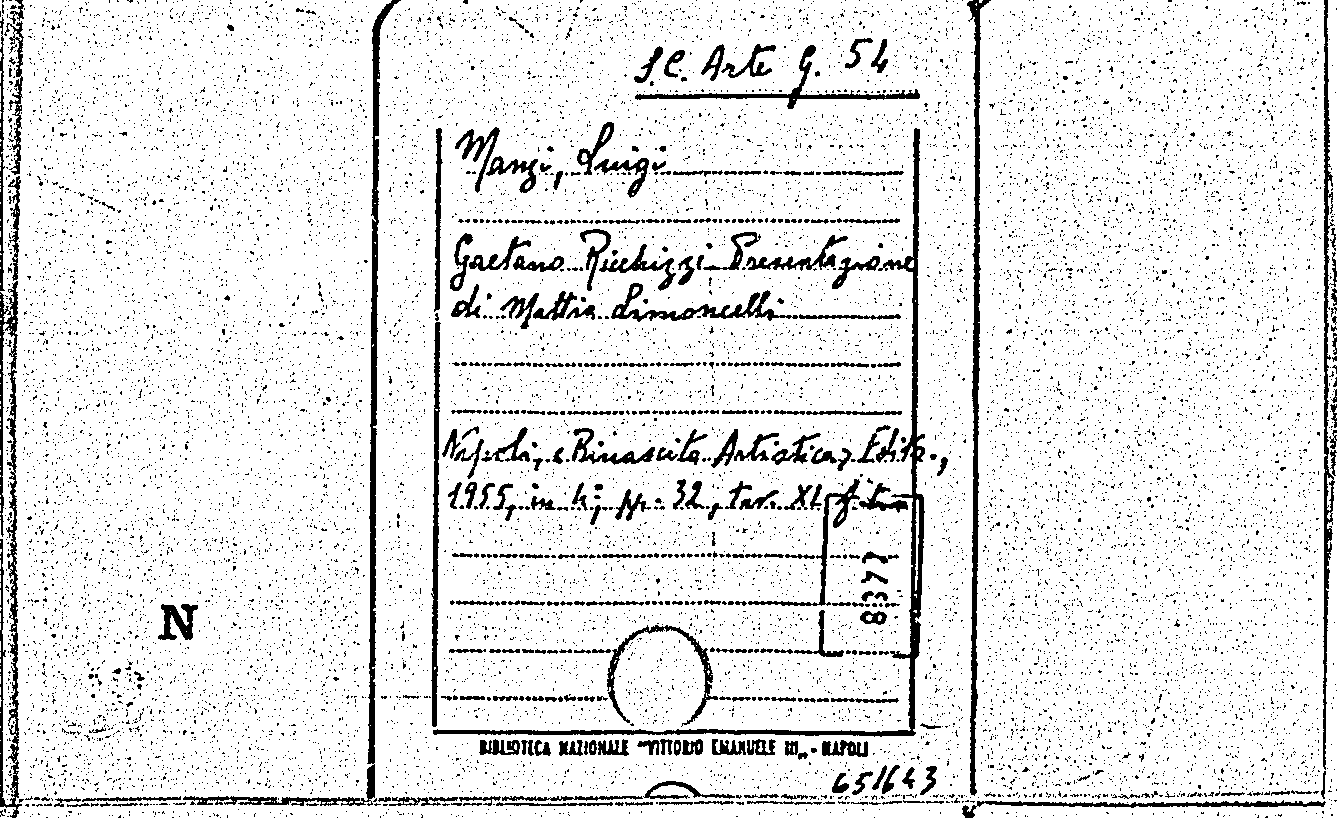 S.C. Arte G. 54
Manzi, Luigi
Gaetano Ricchizzi Presentazione
di Mattia Limoncelli
Napoli, "Rinascita Artistica" Edit.,
1955, in 4°; pp. 32, tav. XL
8377
N
BIBLIOTECA NAZIONALE "VITTORIO EMANUELE III„ - NAPOLI
651643